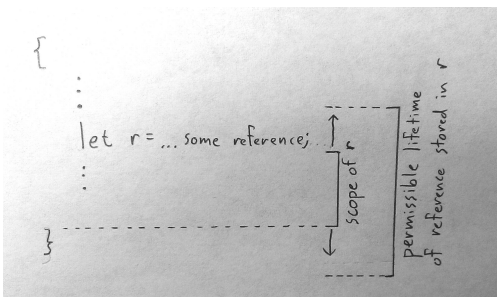 {
let r = ... some reference;
}
scope of r
permissible lifetime
of reference stored in r